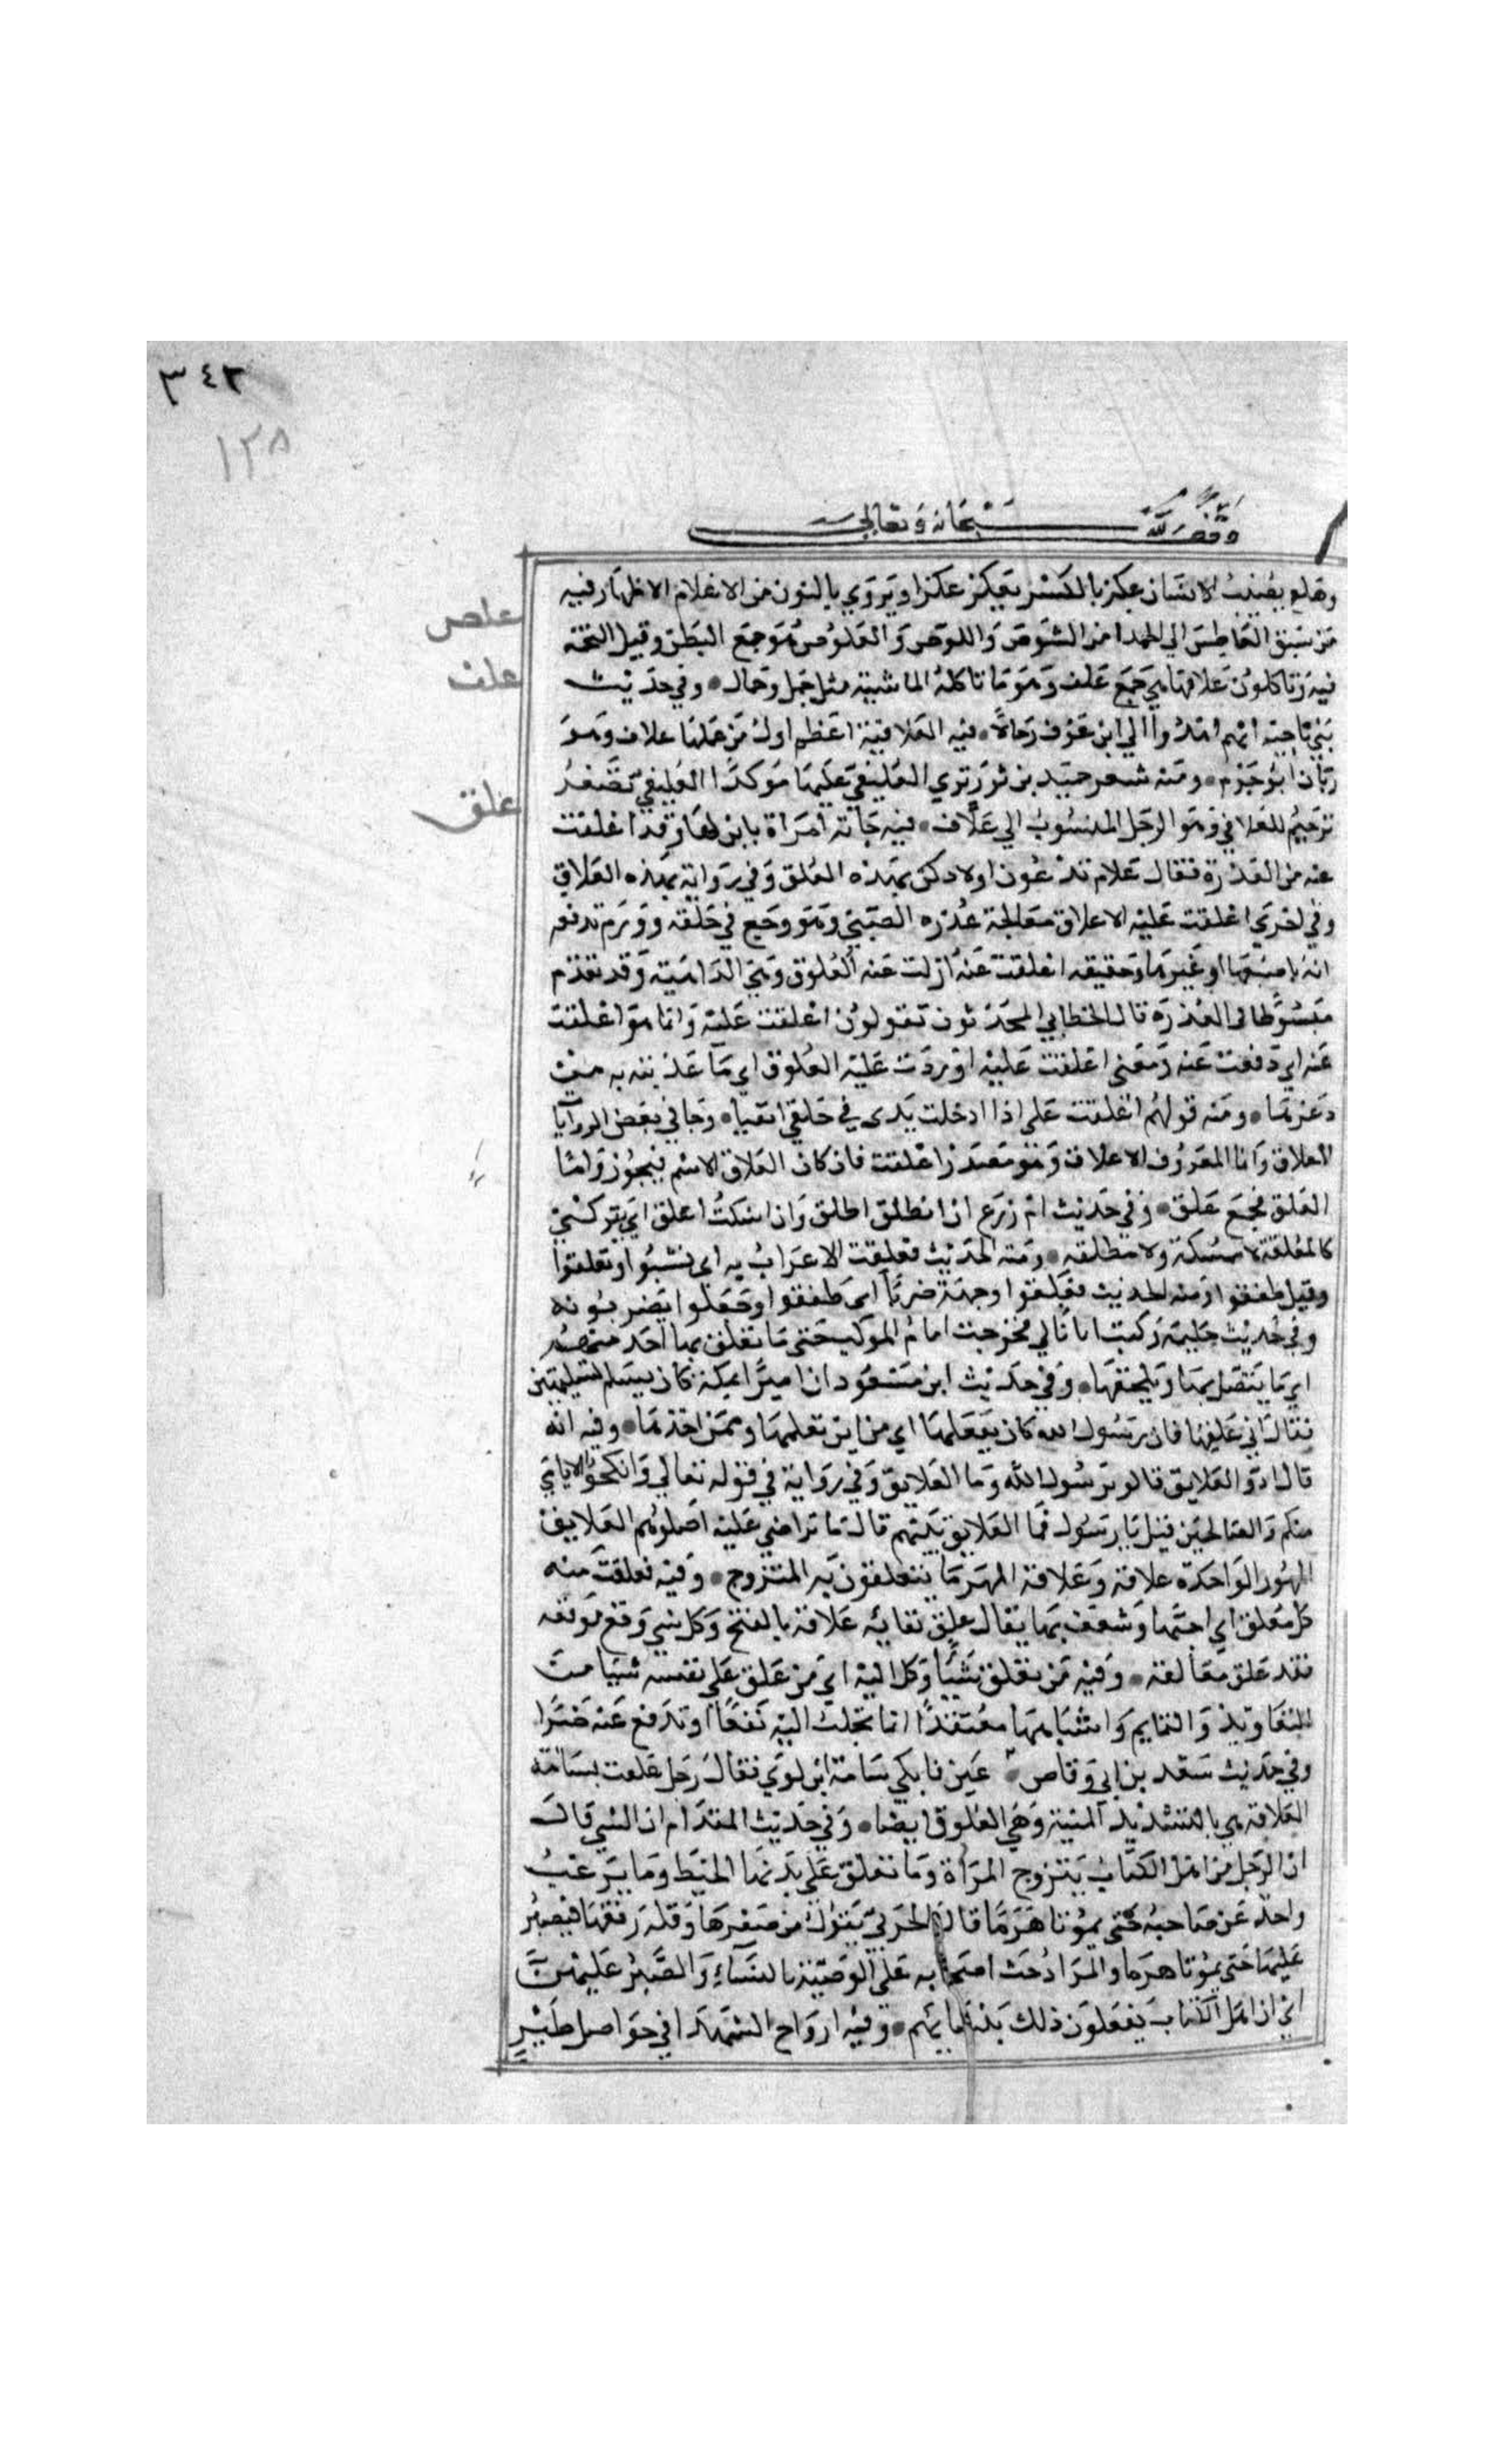 ٣٤٢
١٢٨
وقف لله سبحانه وتعالى
وهلع يصيب الانسان علز بالكسر يعلز علزا ويروي بالنون من الاعلان الاظهار فيه
علص
من سبق العاطس الي الحمد امن الشوص واللوص والعلوص هو وجع البطن وقيل التخمه
علف
فيه وتاكلون علافها هي جمع علف وهو ما تاكله الماشية مثل جمل وجمال وفي حديث
بني ناجية انهم اهدوا الي ابن عوف رحالا فيه العلافية اعظم اول من عملها علاف وهو
ربان ابو جرم ومنه شعر حميد بن ثور تري العليفي عليها موكدا العليفي تصغير
علق
ترخيم للعلافي وهو الرجل المنسوب الي علاف فيه جاته امراة بابن لها وقد اعلقت
عنه من العذرة فقال علام تدغرن اولادكن بهذه العلق وفي رواية بهذه العلاق
وفي اخري اعلقت عليه الاعلاق معالجة عذره الصبي وهو وجع في حلقه وورم تدفعه
امه باصبعها او غيرها وحقيقه اعلقت عنه ازلت عنه العلوق وهي الداهية وقد تقدم
مبسوطا في العذرة قال الخطابي المحدثون تقولون اعلقت عليه وانما هو اعلقت
عنه اي دفعت عنه ومعني اعلقت عليه اوردت عليه العلوق اي ما عذبته به من
دغرها ومنه قولهم اعلقت علي اذا ادخلت يدي في حلقي اتقيا وجا في بعض الروايا
العلاق وانما المعروف الاعلاق وهو مصدر اعلقت فان كان العلاق الاسم فيجوز واما
العلق فجمع علق وفي حديث ام زرع ان انطلق اطلق وان اسكت اعلق اي يتركني
كالمعلقة لا ممسكة ولا مطلقه ومنه الحديث فعلقت الاعراب به اي نشبوا وتعلقوا
وقيل طفقوا ومنه الحديث فعلقوا وجهه ضربا اي طفقوا وجعلوا يضربونه
وفي حديث حليمة ركبت اتانا لي فخرجت امام الركب حتي ما تعلق بها احد منهم
اي ما يتصل بها ويلحقها وفي حديث ابن مسعود ان اميرا بمكة كان يسلم تسليمتين
فقال اني علقها فان رسول الله كان يفعلها اي من اين تعلمها وممن اخذها وفيه انه
قال ادوا العلايق قالوا يرسول الله وما العلايق وفي رواية في قوله تعالي وانكحوا الايامي
منكم والصالحين قيل يا رسول فما العلايق بينهم قال ما تراضي عليه اهلوهم العلايق
المهور الواحدة علاقة وعلاقة المهر ما يتعلقون به المتزوج وفيه فعلقت منه
كل معلق اي احبها وشعف بها يقال علق علاقة بالفتح وكل شي وقع موقعه
فقد علق معالقه وفيه من تعلق شيا وكل اليه اي من علق علي نفسه شيا من
التعاويذ والتمايم واشباهها معتقدا انها تجلب اليه نفعا او تدفع عنه ضرا
وفي حديث سعد بن ابي وقاص عين فابكي سامة ابن لوي فقال رجل علقت بسامه
العلاقة هي بالتشديد المنية وهي العلوق ايضا وفي حديث المقدام ان النبي قال
ان الرجل من اهل الكتاب يتزوج المراة وما تعلق علي يديها الخيط وما يرغب
واحد عن صاحبه حتي يموتا هرما قال الحربي يقول من صغرها وقلة رفقها فيصبر
عليها حتي يموتا هرما والمراد حث اصحابه علي الوصية بالنساء والصبر عليهن
اي ان اهل الكتاب يفعلون ذلك بنسايهم وفيه ارواح الشهدا في حواصل طير